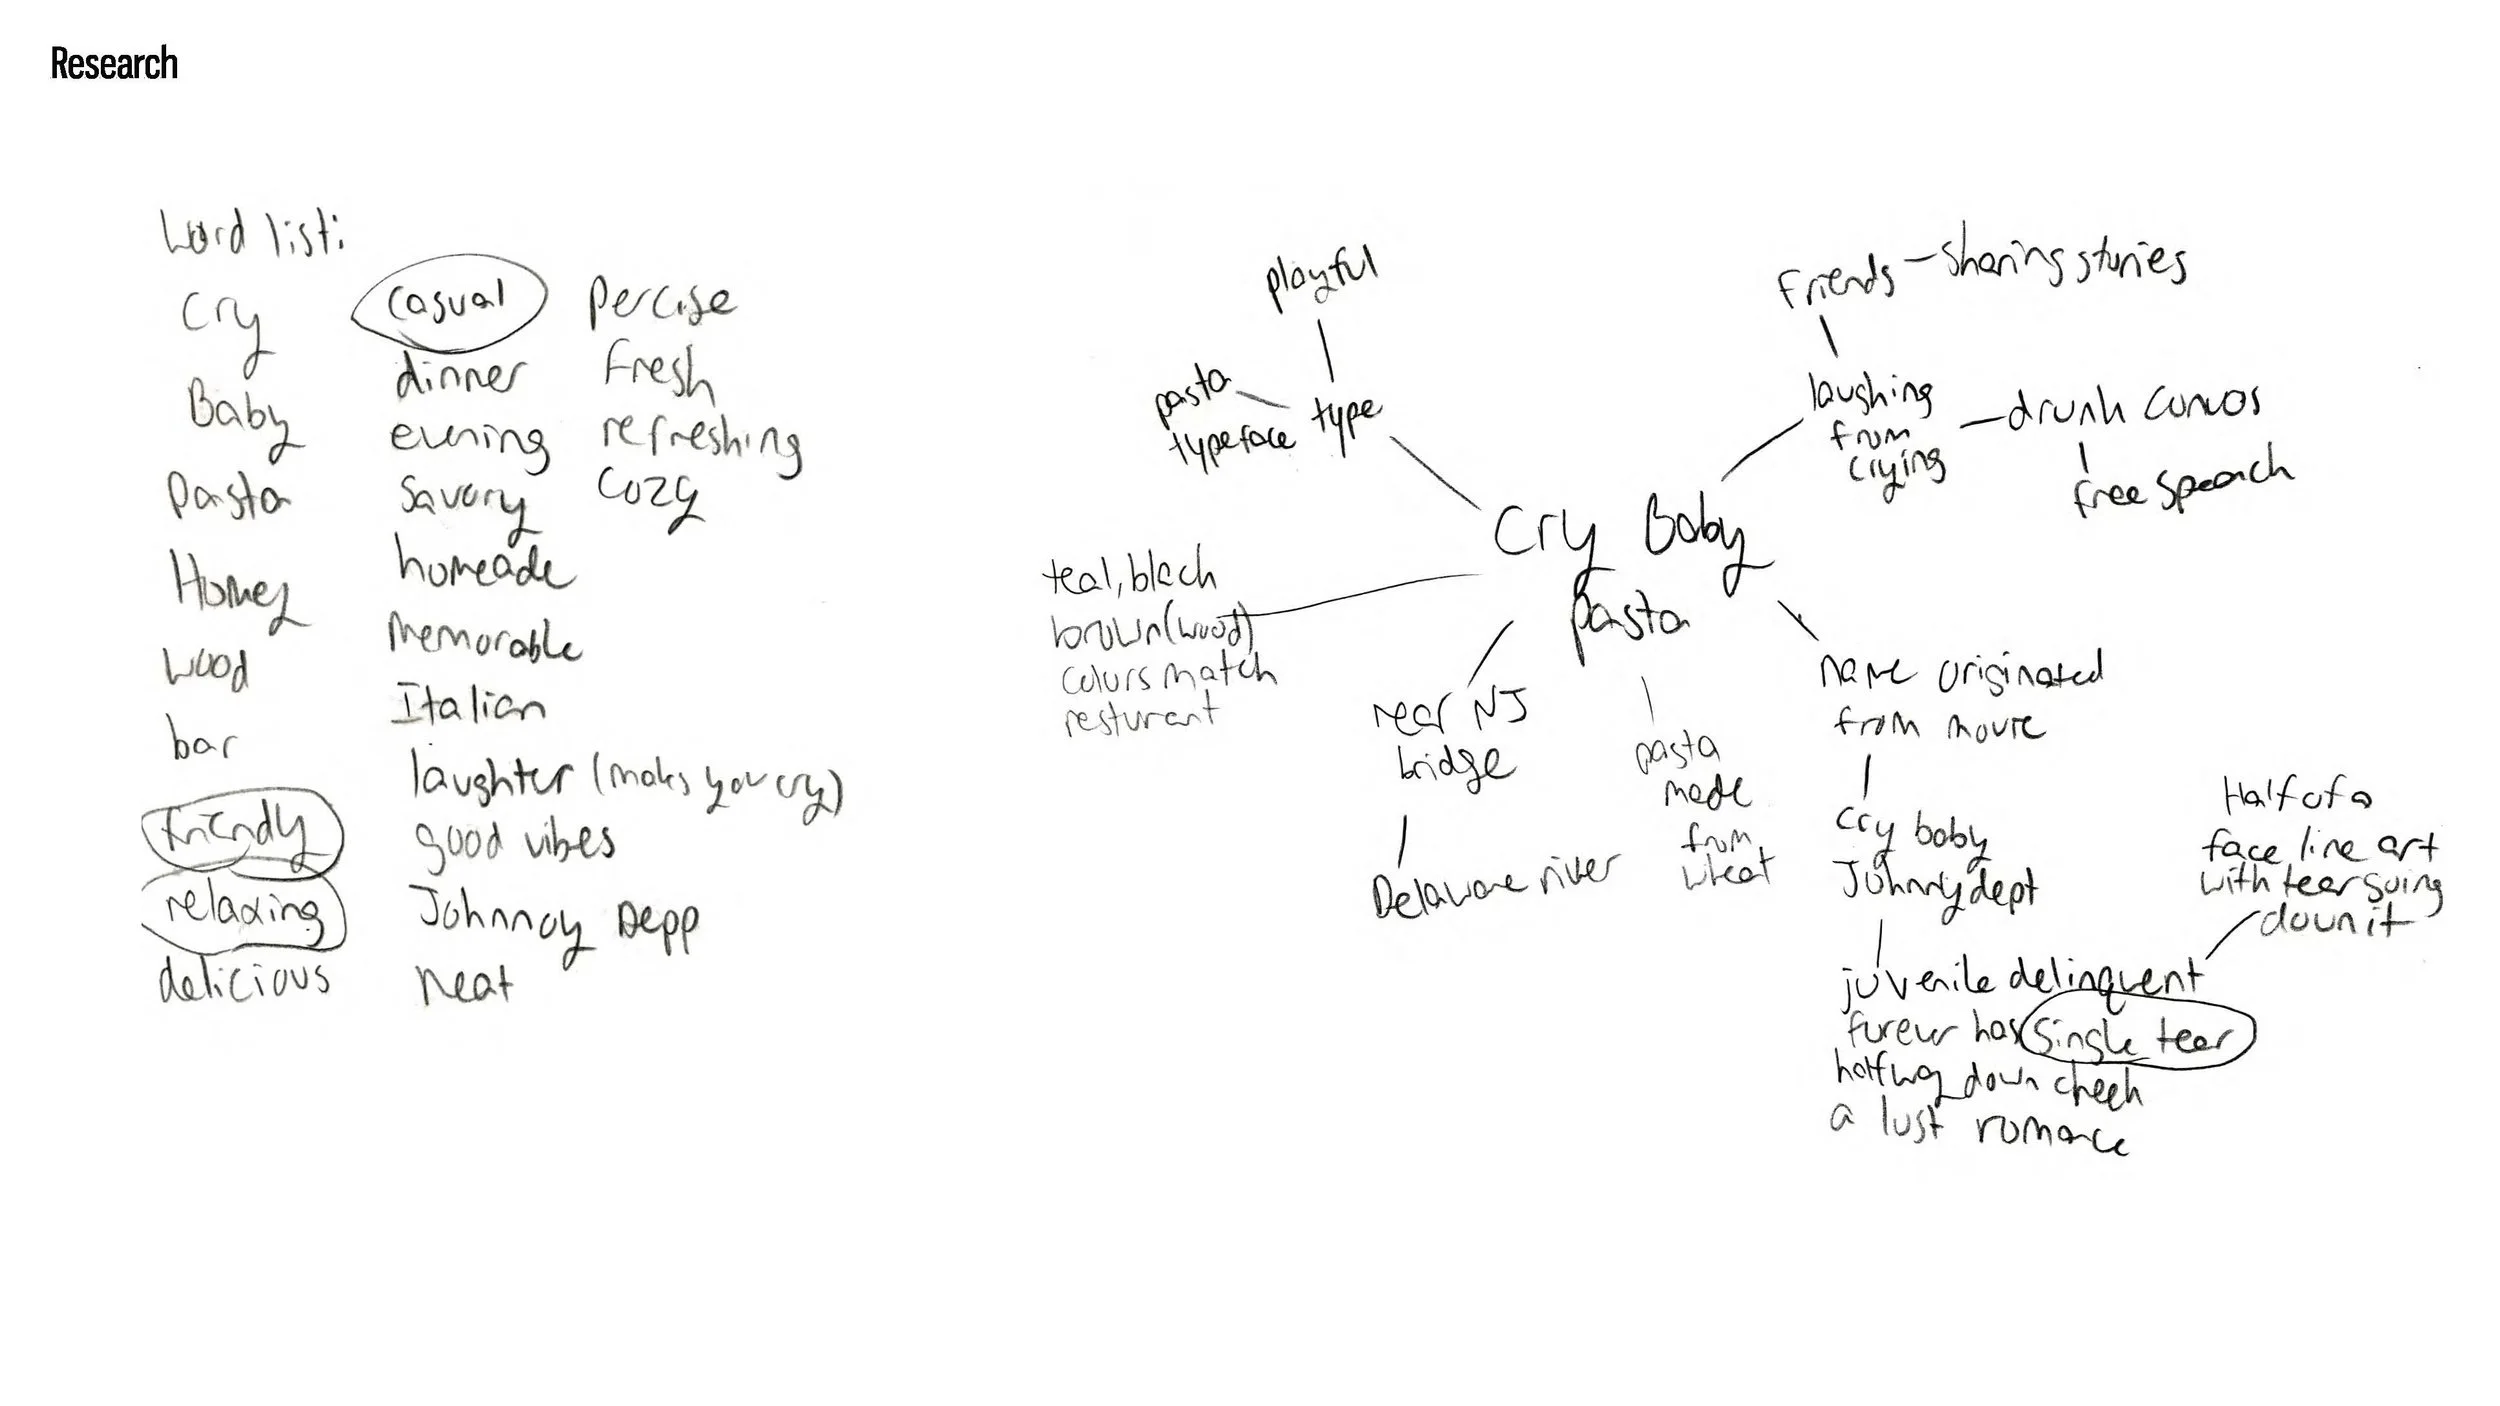 Research
Word list:
Cry
Baby
Pasta
Homey
wood
bar
friendly
relaxing
delicious
casual
dinner
evening
savory
homeade
Memorable
Italian
laughter (makes you cry)
good vibes
Johnnoy Depp
neat
Percise
fresh
refreshing
cozy
playful
pasta
typeface
type
Friends – sharing stories
laughing
from
crying
drunk convos
free speach
Cry Baby
pasta
teal, black
brown (wood)
colors match
resturant
near NJ
bridge
Delaware river
pasta
made
from
wheat
name originated
from movie
Cry baby
Johnny dept
juvenile delinquent
forever has single tear
halfway down cheek
a lust romance
Half of a
face line art
with tear going
down it